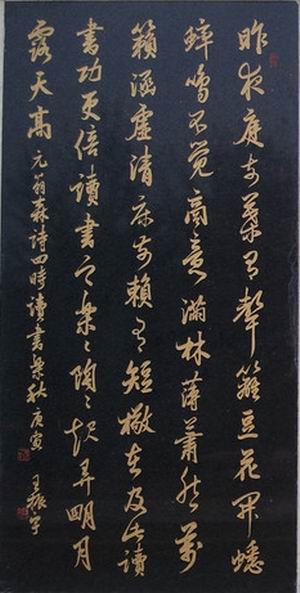 昨夜庭前葉有聲籬豆花開蟋
蟀鳴不覺商意滿林薄蕭然萬
籟涵虛清床前賴有短檠在及此讀
書功更倍讀書之樂樂陶陶起弄明月
霜天高 元翁森詩四時讀書樂秋 庚寅